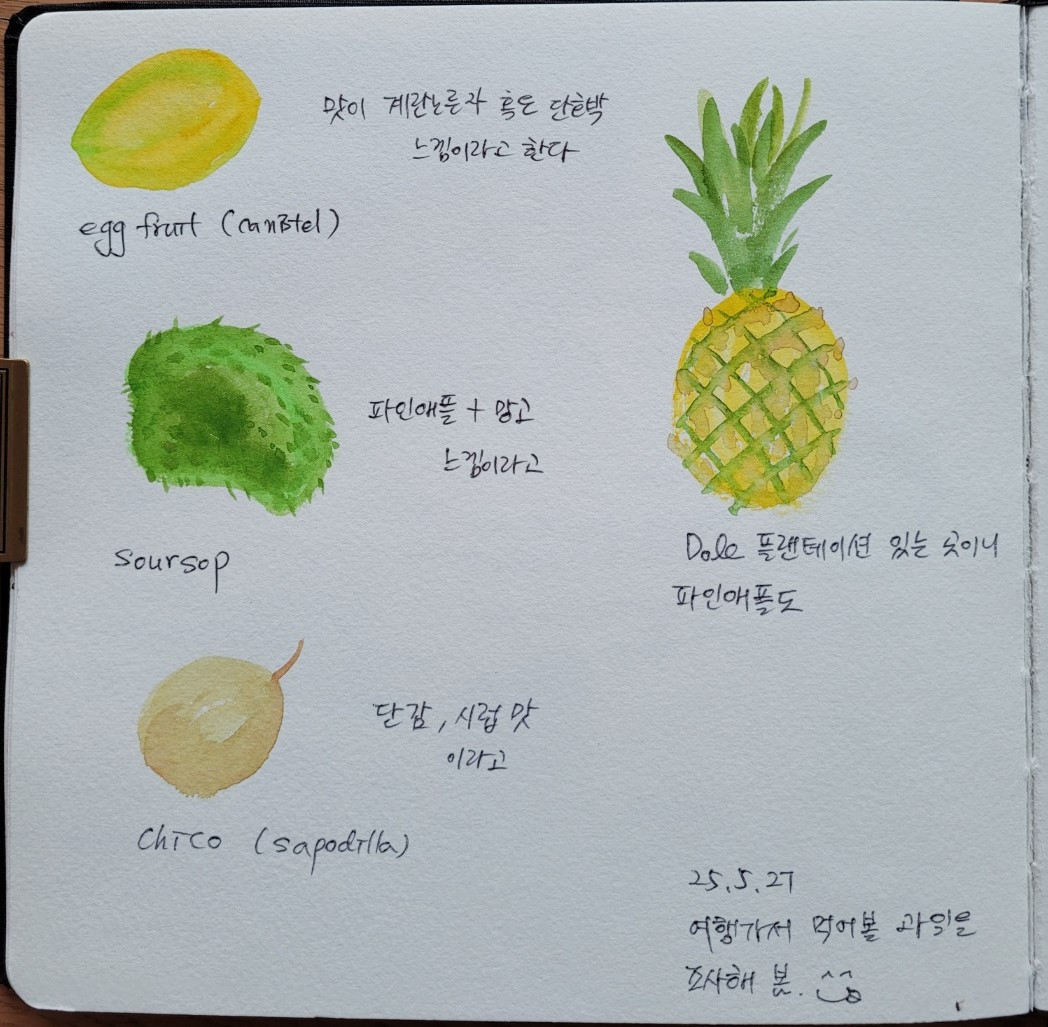 맛이 계란노른자 혹은 단호박
느낌이라고 한다
egg fruit (canistel)
파인애플 + 망고
느낌이라고
soursop
Dole 플랜테이션 있는 곳이니
파인애플도
단감, 시럽 맛
이라고
chico (sapodilla)
25.5.27
여행가서 먹어볼 과일을
조사해 봄.